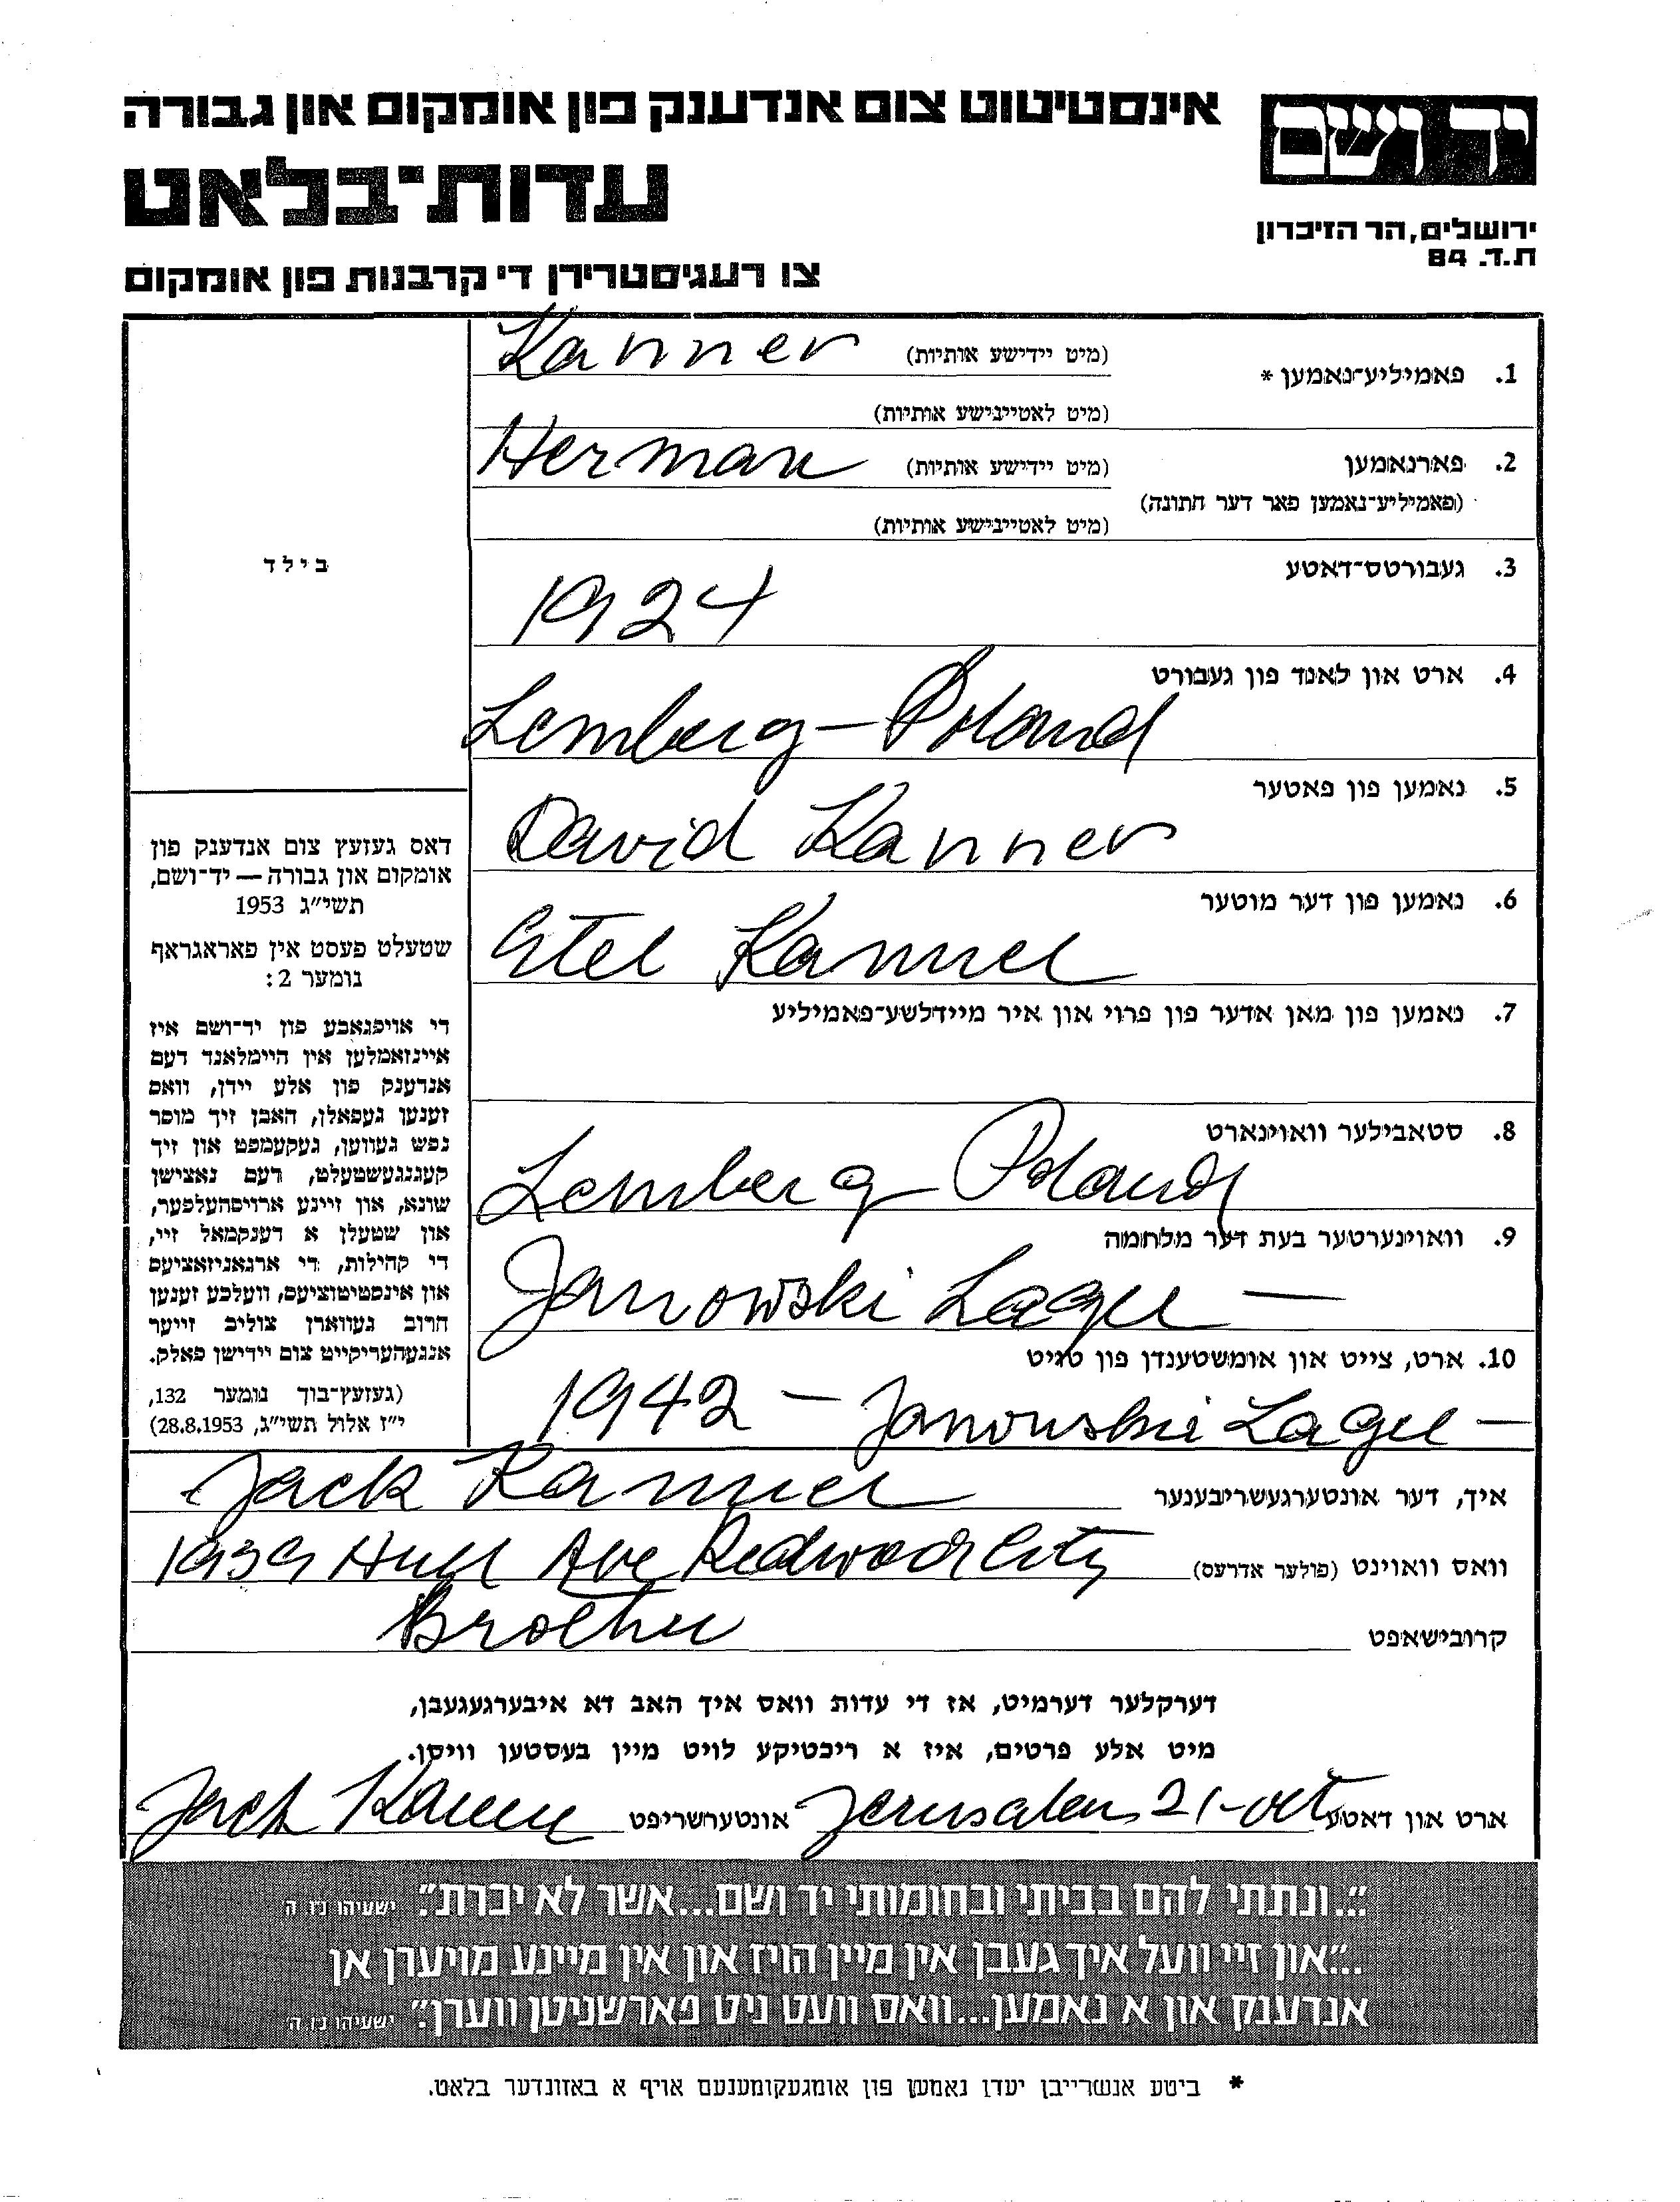 אינסטיטוט צום אנדענק פון אומקום און גבורה
יד ושם
עדות־בלאט
ירושלים, הר הזיכרון
ת.ד. 84
צו רעגיסטרירן די קרבנות פון אומקום
1. פאמיליע־נאמען * (מיט יידישע אותיות) Kanner
(מיט לאטיינישע אותיות)
2. פארנאמען (מיט יידישע אותיות) Herman
(פאמיליע־נאמען פאר דער חתונה)
(מיט לאטיינישע אותיות)
בילד
3. געבורטס־דאטע
1924
4. ארט און לאנד פון געבורט
Lemberg - Poland
5. נאמען פון פאטער
David Kanner
6. נאמען פון דער מוטער
Etel Kanner
7. נאמען פון מאן אדער פון פרוי און איר מיידלשע־פאמיליע
8. סטאבילער וואוינארט
Lemberg Poland
9. וואוינערטער בעת דער מלחמה
Janowski Lager —
10. ארט, צייט און אומשטענדן פון טויט
1942 — Janowski Lager —
דאס געזעץ צום אנדענק פון
אומקום און גבורה — יד־ושם,
תשי״ג 1953
שטעלט פעסט אין פאראגראף
נומער 2:
די אויפגאבע פון יד־ושם איז
איינזאמלען אין היימלאנד דעם
אנדענק פון אלע יידן, וואס
זענען געפאלן, האבן זיך מוסר
נפש געווען, געקעמפט און זיך
קעגנגעשטעלט, דעם נאצישן
שונא, און זיינע ארויסהעלפער,
און שטעלן א דענקמאל זיי,
די קהילות, די ארגאניזאציעס
און אינסטיטוציעס, וועלכע זענען
חרוב געווארן צוליב זייער
אנגעהעריקייט צום יידישן פאלק.
(געזעץ־בוך נומער 132,
י״ז אלול תשי״ג, 28.8.1953)
איך, דער אונטערגעשריבענער Jack Kanner
וואס וואוינט (פולער אדרעס) 1939 Hull Ave Redwood City
קרובישאפט Brother
דערקלער דערמיט, אז די עדות וואס איך האב דא איבערגעגעבן,
מיט אלע פרטים, איז א ריכטיקע לויט מיין בעסטען וויסן.
ארט און דאטע Jerusalem 21-oct אונטערשריפט Jack Kanner
״...ונתתי להם בביתי ובחומותי יד ושם...אשר לא יכרת״. ישעיהו נ״ו ה
...״און זיי וועל איך געבן אין מיין הויז און אין מיינע מויערן אן
אנדענק און א נאמען...וואס וועט ניט פארשניטן ווערן״. ישעיהו נ״ו ה׳
* ביטע אנשרייבן יעדן נאמען פון אומגעקומענעם אויף א באזונדער בלאט.